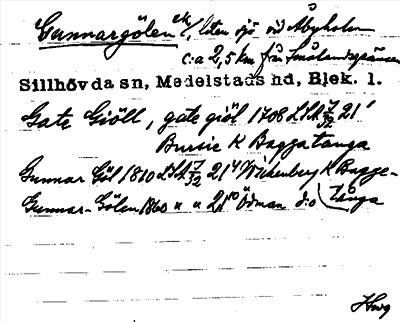 Gunnargölen ek/, liten sjö vid Åbyholm
c:a 2,5 km från Smålandsgränsen
Sillhövda sn, Medelstads hd, Blek. l.
Gate Giöll, gate giöl 1708 LSA 7/32 21'
Bursie K Baggatånga
Gunnar Göl 1810 LSA 7/32 21 4 Wickenberg K Bagge-
Gunnar-Gölen 1860 " " 21 10 Ödman d:o (tånga